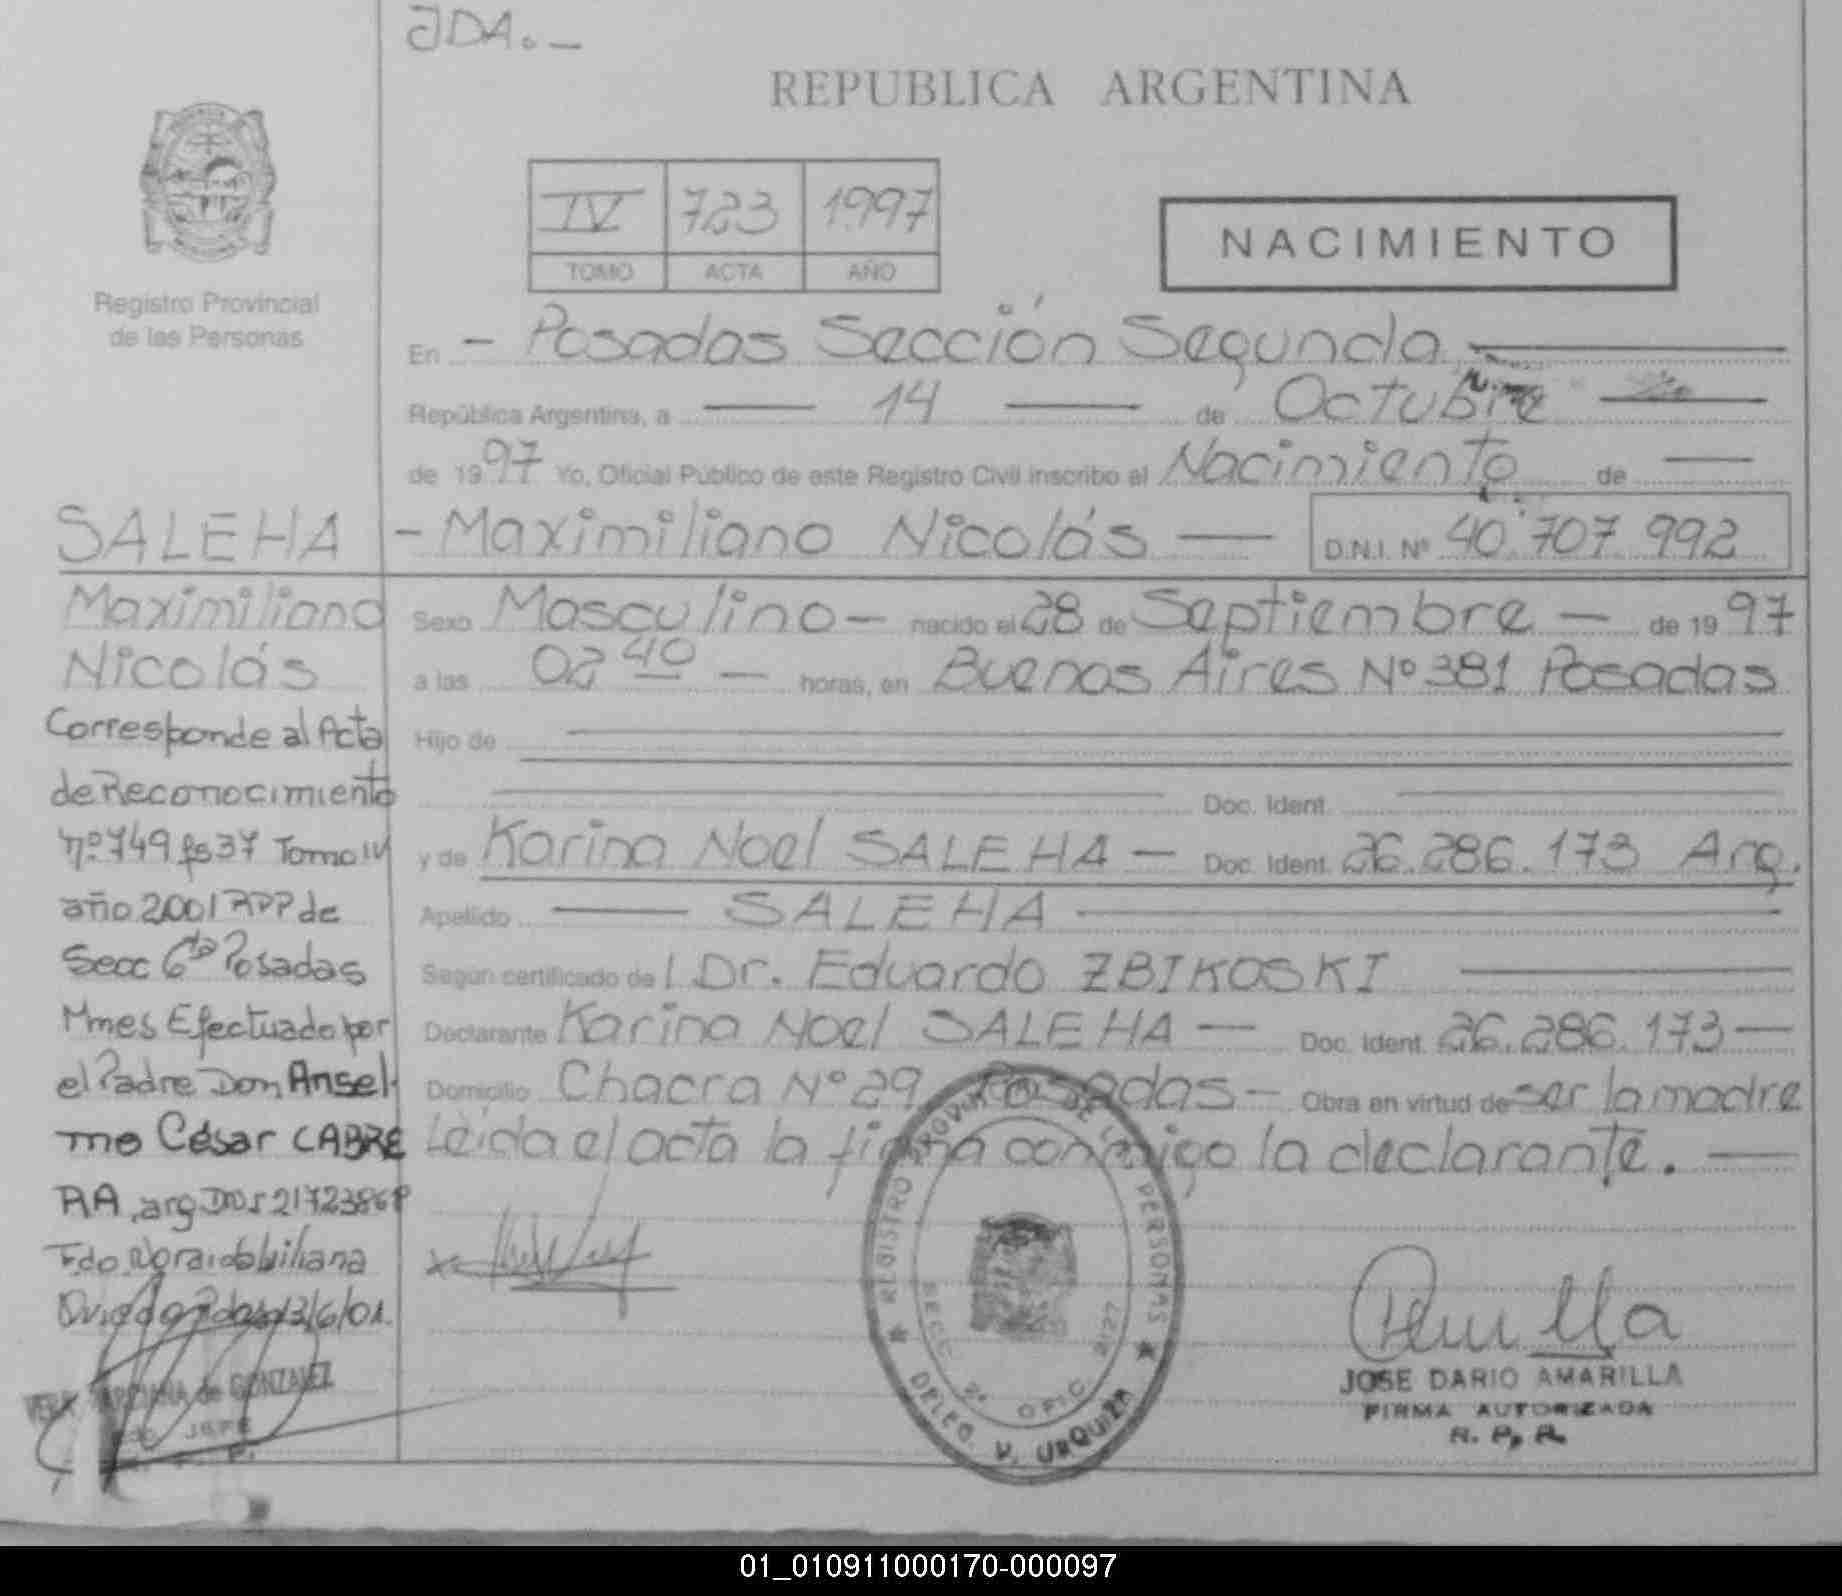 JDA.-
REPUBLICA ARGENTINA
IV 723 1997
TOMO ACTA AÑO
NACIMIENTO
Registro Provincial
de las Personas
En - Posadas Sección Segunda
República Argentina, a 14 de Octubre
de 1997 Yo, Oficial Público de este Registro Civil inscribo el Nacimiento de
- Maximiliano Nicolás — D.N.I. Nº 40.707.992
Sexo Masculino - nacido el 28 de Septiembre - de 1997
a las 02 40 - horas, en Buenos Aires Nº 381 Posadas
Hijo de
Doc. Ident.
y de Karina Noel SALEHA - Doc. Ident. 26.286.173 Arg.
Apellido SALEHA
Según certificado de l Dr. Eduardo ZBIKOSKI
Declarante Karina Noel SALEHA - Doc. Ident. 26.286.173 -
Domicilio Chacra Nº 29 Posadas - Obra en virtud de ser la madre
Leída el acta la firma conmigo la declarante. -
SALEHA
Maximiliano
Nicolás
Corresponde al Acta
de Reconocimiento
nº 749 fs 37 Tomo IV
año 2001 RPP de
Secc 6ta Posadas
Mnes Efectuado por
el Padre Don Ansel-
mo César CABRE
RA, arg DNI
Fdo
13/6/01.
de GONZALEZ
JEFE
REGISTRO PROVINCIAL DE LAS PERSONAS
SECC. 2ª OFIC. 2127
DELEG. V. URQUIZA
JOSE DARIO AMARILLA
FIRMA AUTORIZADA
R. P. P.
01_010911000170-000097